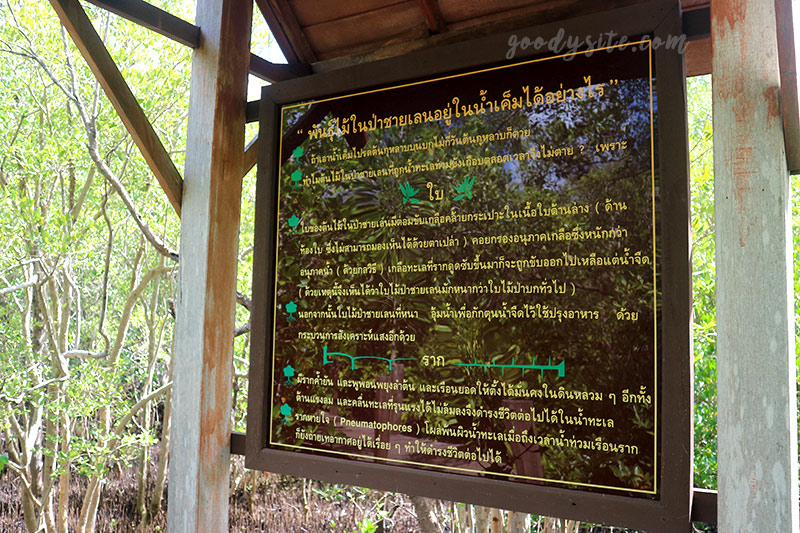 goodysite.com
“ พันธุ์ไม้ในป่าชายเลนอยู่ในน้ำเค็มได้อย่างไร ”
ถ้าเอาน้ำเค็มไปรดต้นกุหลาบบนบกไม่กี่วันต้นกุหลาบก็ตาย
ทำไมต้นไม้ในป่าชายเลนที่ถูกน้ำทะเลท่วมขังเกือบตลอดเวลาจึงไม่ตาย ? เพราะ
ใบ
ใบของต้นไม้ในป่าชายเลนมีต่อมขับเกลือคล้ายกระเปาะในเนื้อใบด้านล่าง ( ด้าน
ท้องใบ ซึ่งไม่สามารถมองเห็นได้ด้วยตาเปล่า ) คอยกรองอนุภาคเกลือซึ่งหนักกว่า
อนุภาคน้ำ ( ด้วยกลวิธี ) เกลือทะเลที่รากดูดซับขึ้นมาก็จะถูกขับออกไปเหลือแต่น้ำจืด
( ด้วยเหตุนี้จึงเห็นได้ว่าใบไม้ป่าชายเลนมักหนากว่าใบไม้ป่าบกทั่วไป )
นอกจากนั้นใบไม้ป่าชายเลนที่หนา อุ้มน้ำเพื่อกักตุนน้ำจืดไว้ใช้ปรุงอาหาร ด้วย
กระบวนการสังเคราะห์แสงอีกด้วย
ราก
มีรากค้ำยัน และพูพอนพยุงลำต้น และเรือนยอดให้ตั้งได้มั่นคงในดินหลวม ๆ อีกทั้ง
ต้านแรงลม และคลื่นทะเลที่รุนแรงได้ไม่ล้มลงจึงดำรงชีวิตต่อไปได้ในน้ำทะเล
รากหายใจ ( Pneumatophores ) โผล่พ้นผิวน้ำทะเลเมื่อถึงเวลาน้ำท่วมเรือนราก
ก็ยังถ่ายเทอากาศอยู่ได้เรื่อย ๆ ทำให้ดำรงชีวิตต่อไปได้